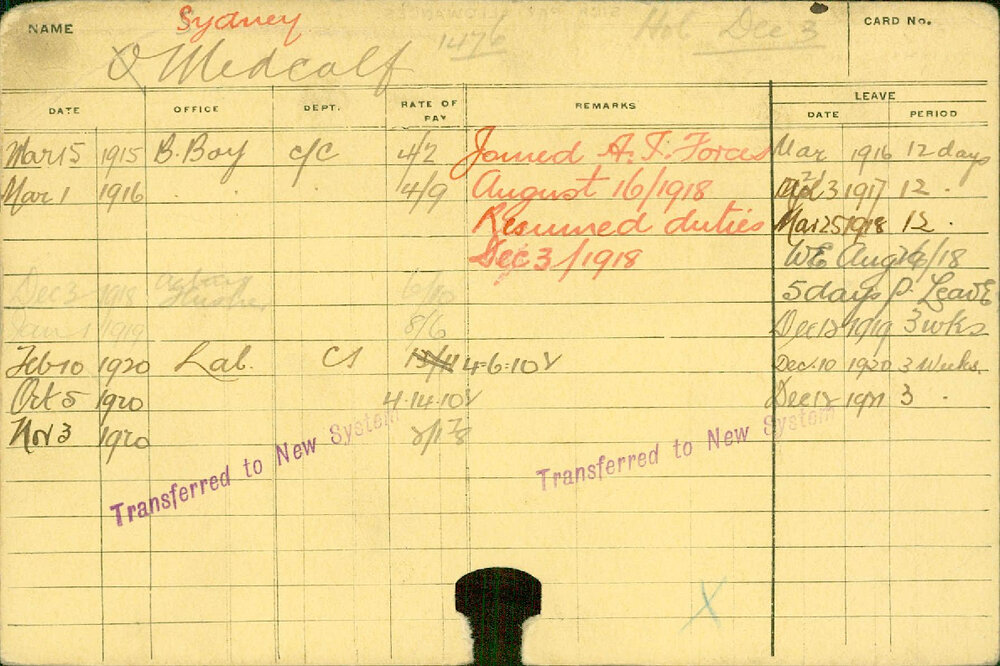 NAME Sydney 1476 Hol Dec 3 CARD No.
O Medcalf
LEAVE
DATE OFFICE DEPT. RATE OF PAY REMARKS DATE PERIOD
Mar 15 1915 B. Boy c/c 4/2 Joined A. I. Forces Mar 1916 12 days
Mar 1 1916 . . . 4/9 August 16/1918 3 1917 12 .
Resumed duties Mar 25 1918 12 .
Dec 3/1918 WE Aug /18
Dec 3 1918 6/10 5 days P. Leave
Jan 1 1919 8/6 Dec 12 1919 3 wks
Feb 10 1920 Lab. CS 4-6-10 Dec. 10 1920 3 Weeks.
Oct 5 1920 4-14-10 Dec 12 1921 3 .
Nov 3 1920
Transferred to New System Transferred to New System
X